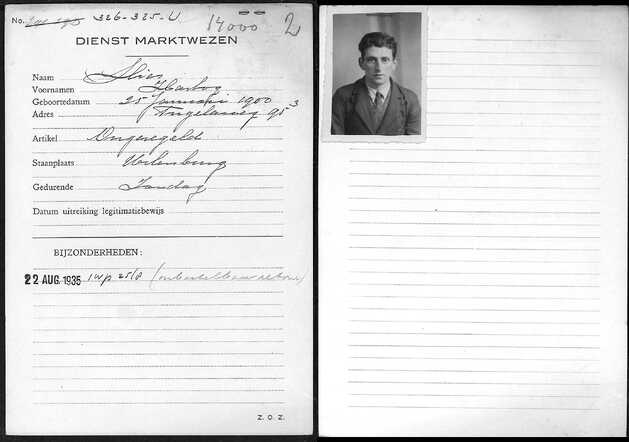 No. 326-325-U 14000 2
DIENST MARKTWEZEN
Naam Slier
Voornamen Hartog
Geboortedatum 25 Januari 1900
Adres 95 3
Artikel Ongeregeld
Staanplaats Uilenburg
Gedurende Zondag
Datum uitreiking legitimatiebewijs
BIJZONDERHEDEN:
22 AUG. 1935 25/8
Z.O.Z.